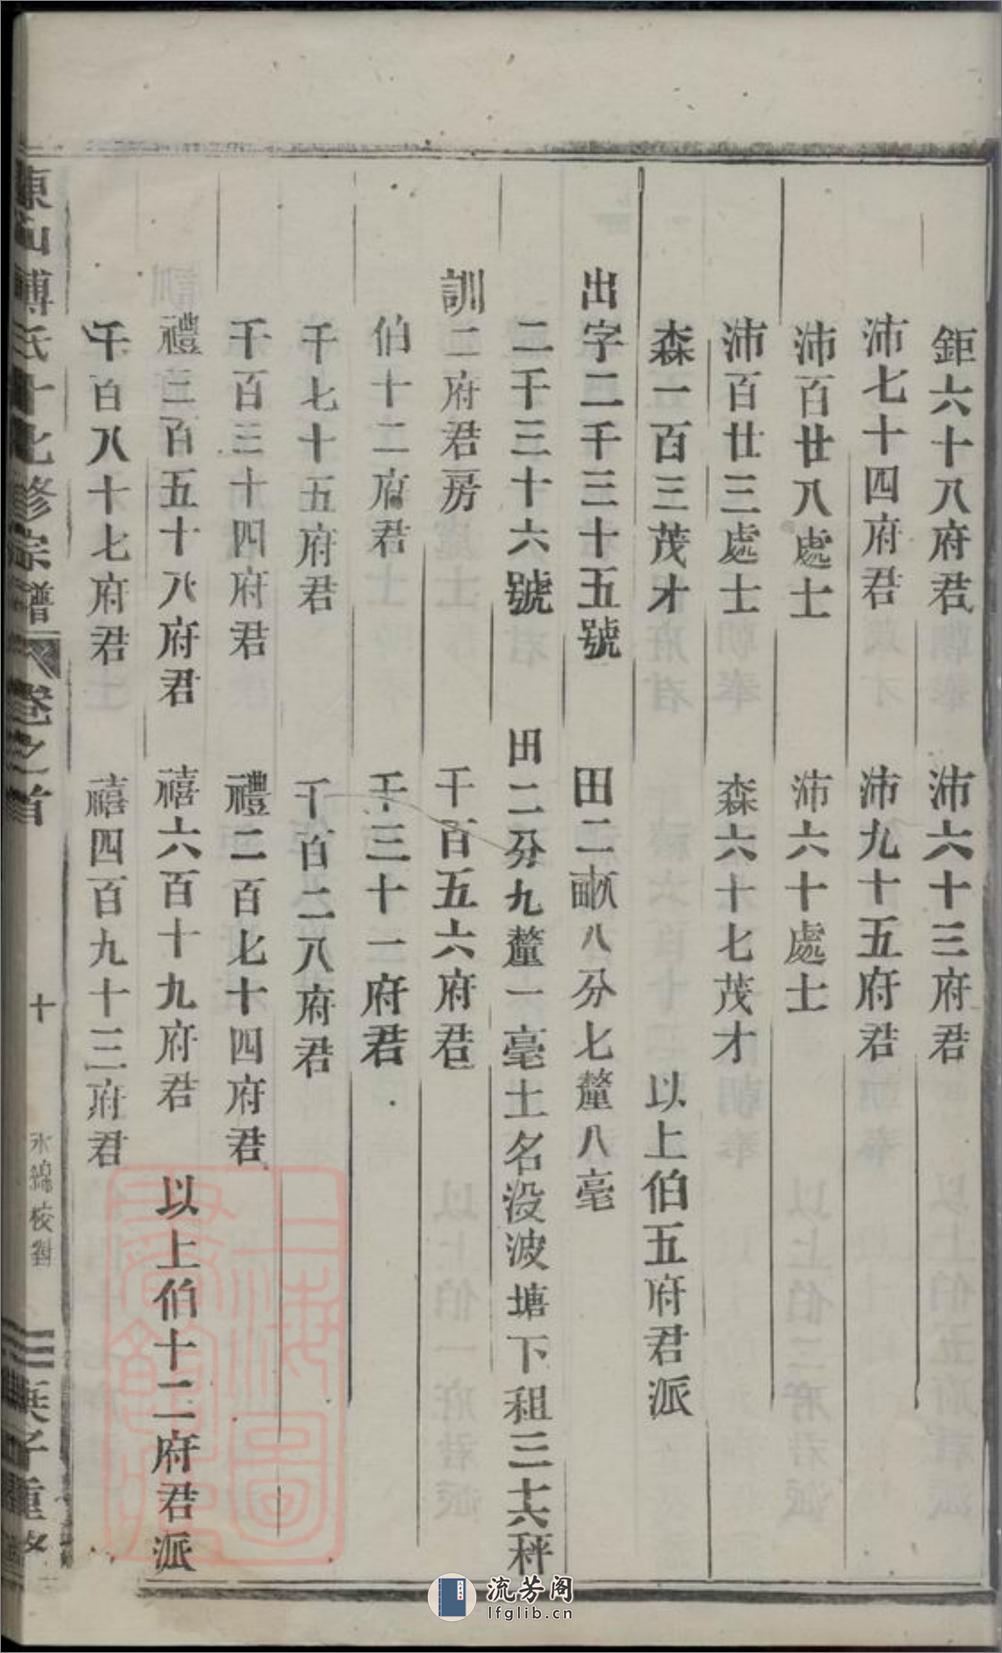 鉅六十八府君　沛六十三府君
沛七十四府君　沛九十五府君
沛百廿八處士　沛六十處士
沛百廿三處士　森六十七茂才
森一百三茂才　以上伯五府君派
出字二千三十五號　田二畝八分七釐八毫
二千三十六號　田二分九釐一毫土名没波塘下租三十六秤
訓二府君房　千百五六府君
伯十二府君　千三十一府君
千七十五府君　千百二八府君
千百三十四府君　禮二百七十四府君
禮三百五十八府君　禧六百十九府君　以上伯十二府君派
千百八十七府君　禧四百九十三府君
東山傅氏十七修宗譜　卷之首　十　永錦校對　三　子重修
上海圖書館藏
流芳阁
lfglib.cn